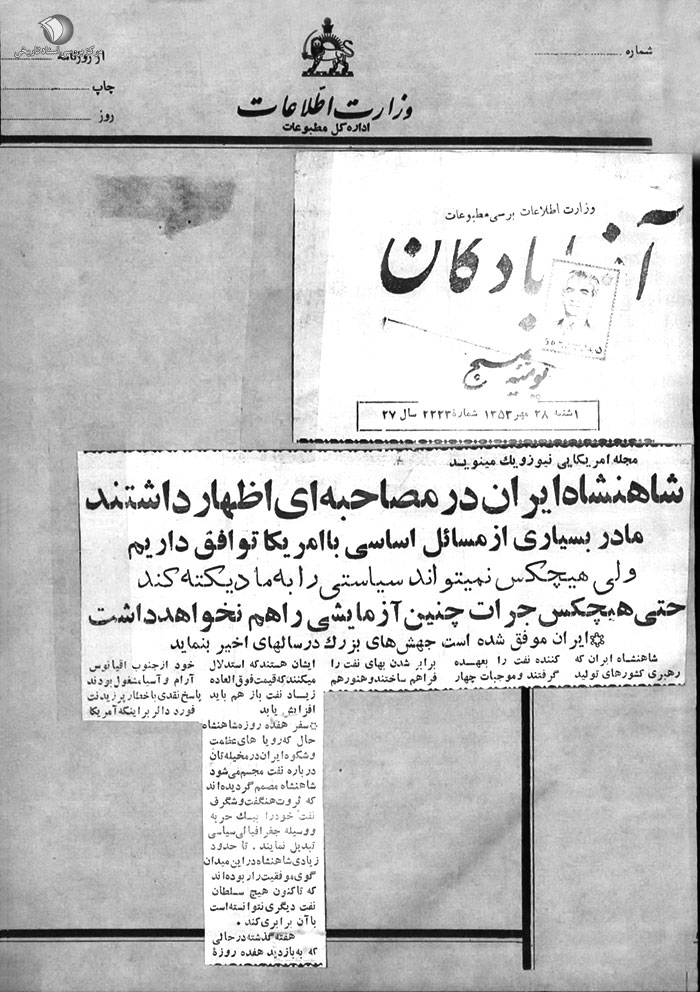 مرکز بررسی اسناد تاریخی
شماره
از روزنامه
چاپ
روز
وزارت اطلاعات
اداره کل مطبوعات
وزارت اطلاعات بررسی مطبوعات
آذربادگان
بسیج
۱ شنبه ۲۸ مهر ۱۳۵۳ شماره ۲۲۲۳ سال ۲۷
مجله امریکایی نیوزویك مینویسد
شاهنشاه ایران در مصاحبه‌ای اظهار داشتند
مادر بسیاری از مسائل اساسی با امریکا توافق داریم
ولی هیچکس نمیتواند سیاستی را به ما دیکته کند
حتی هیچکس جرات چنین آزمایشی را هم نخواهد داشت
ایران موفق شده است جهش‌های بزرك در سالهای اخیر بنماید
شاهنشاه ایران که
رهبری کشورهای تولید
کننده نفت را بعهده
گرفتند و موجبات چهار
برابر شدن بهای نفت را
فراهم ساختند و هنوز هم
ایشان هستند که استدلال
میکنند که قیمت فوق العاده
زیاد نفت باز هم باید
افزایش یابد
سفر هفده روزه شاهنشاه
حال که رویا های عظمت
و شکوه ایران در مخیله تان
درباره نفت مجسم می‌شود
شاهنشاه مصمم گردیده‌اند
که ثروت هنگفت و شگرف
نفت خود را بیك حربه
و وسیله جغرافیائی سیاسی
تبدیل نمایند . تا حدود
زیادی شاهنشاه در این میدان
گوی موفقیت را ربوده‌اند
که تاکنون هیچ سلطان
نفت دیگری نتوانسته است
با آن برابری کند .
هفته گذشته در حالی
که به بازدید هفده روزهٔ
خود از جنوب اقیانوس
آرام و آسیا مشغول بودند
پاسخ نقدی با خشار پرزیدنت
فورد دائر بر اینکه آمریکا